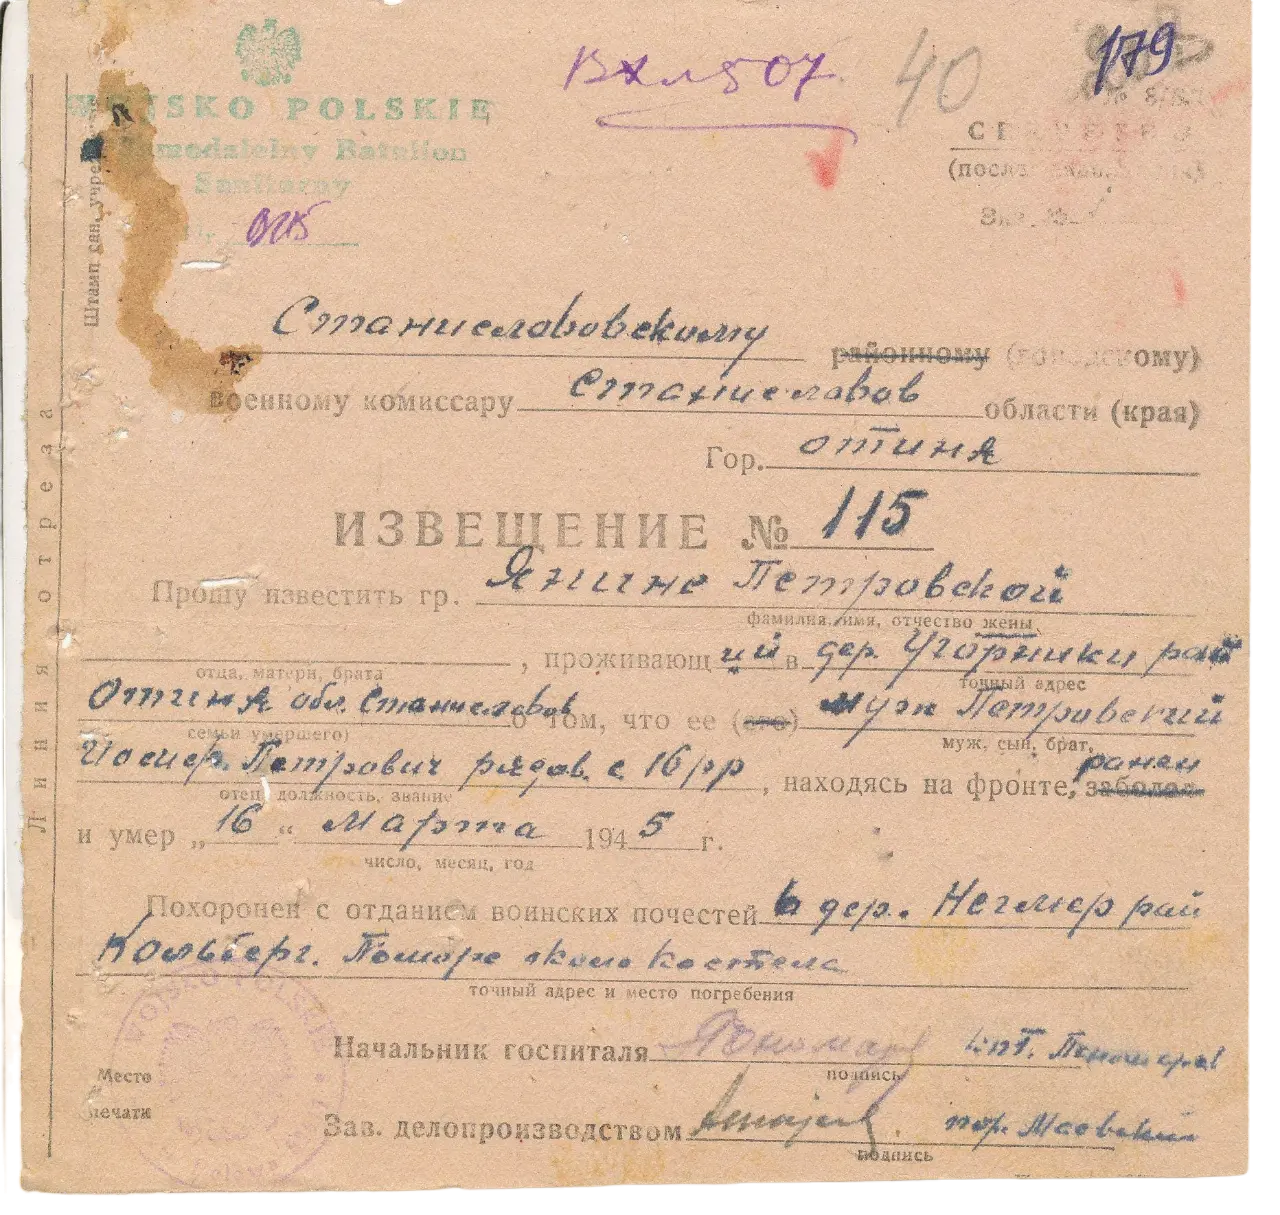 Вхл507.
40
179
WOJSKO POLSKIE
Samodzielny Batalion
Sanitarny
Штамп сан. учреж
Станиславовскому районному (городскому)
военному комиссару Станиславов области (края)
Гор. отиня
ИЗВЕЩЕНИЕ № 115
Прошу известить гр. Янине Петровской
фамилия, имя, отчество жены,
, проживающ ий в дер. Угорники рай
отца, матери, брата
точный адрес
Отиня обл. Станиславов о том, что ее (его) муж Петровский
семьи умершего)
муж, сын, брат,
Иосиф. Петрович рядов. с 16 рр , находясь на фронте, ранен заболел
отец, должность, звание
и умер „ 16 “ марта 1945 г.
число, месяц, год
Похоронен с отданием воинских почестей в дер. Негмер рай
Кольберг. Поморе около костела
точный адрес и место погребения
WOJSKO POLSKIE
Начальник госпиталя кпт. Пономарев
подпись
Место
печати
Зав. делопроизводством пор. Маевский
подпись
Линия отреза